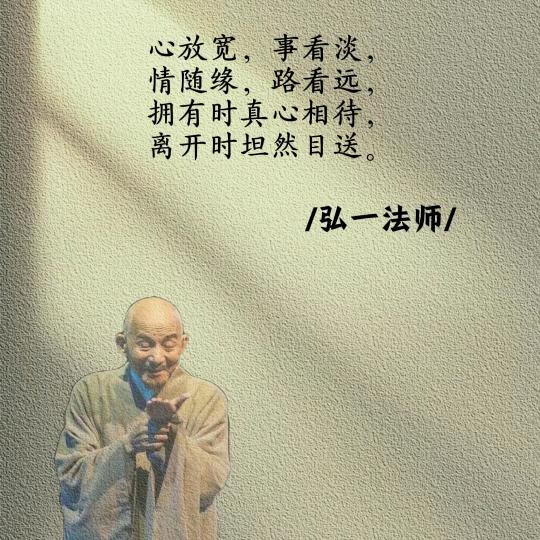 心放宽，事看淡，
情随缘，路看远，
拥有时真心相待，
离开时坦然目送。
/弘一法师/